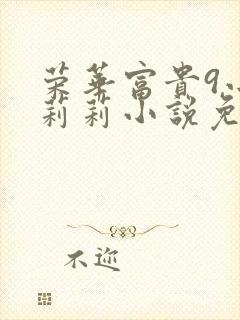 荣華富貴9
莉莉小說免
不迩